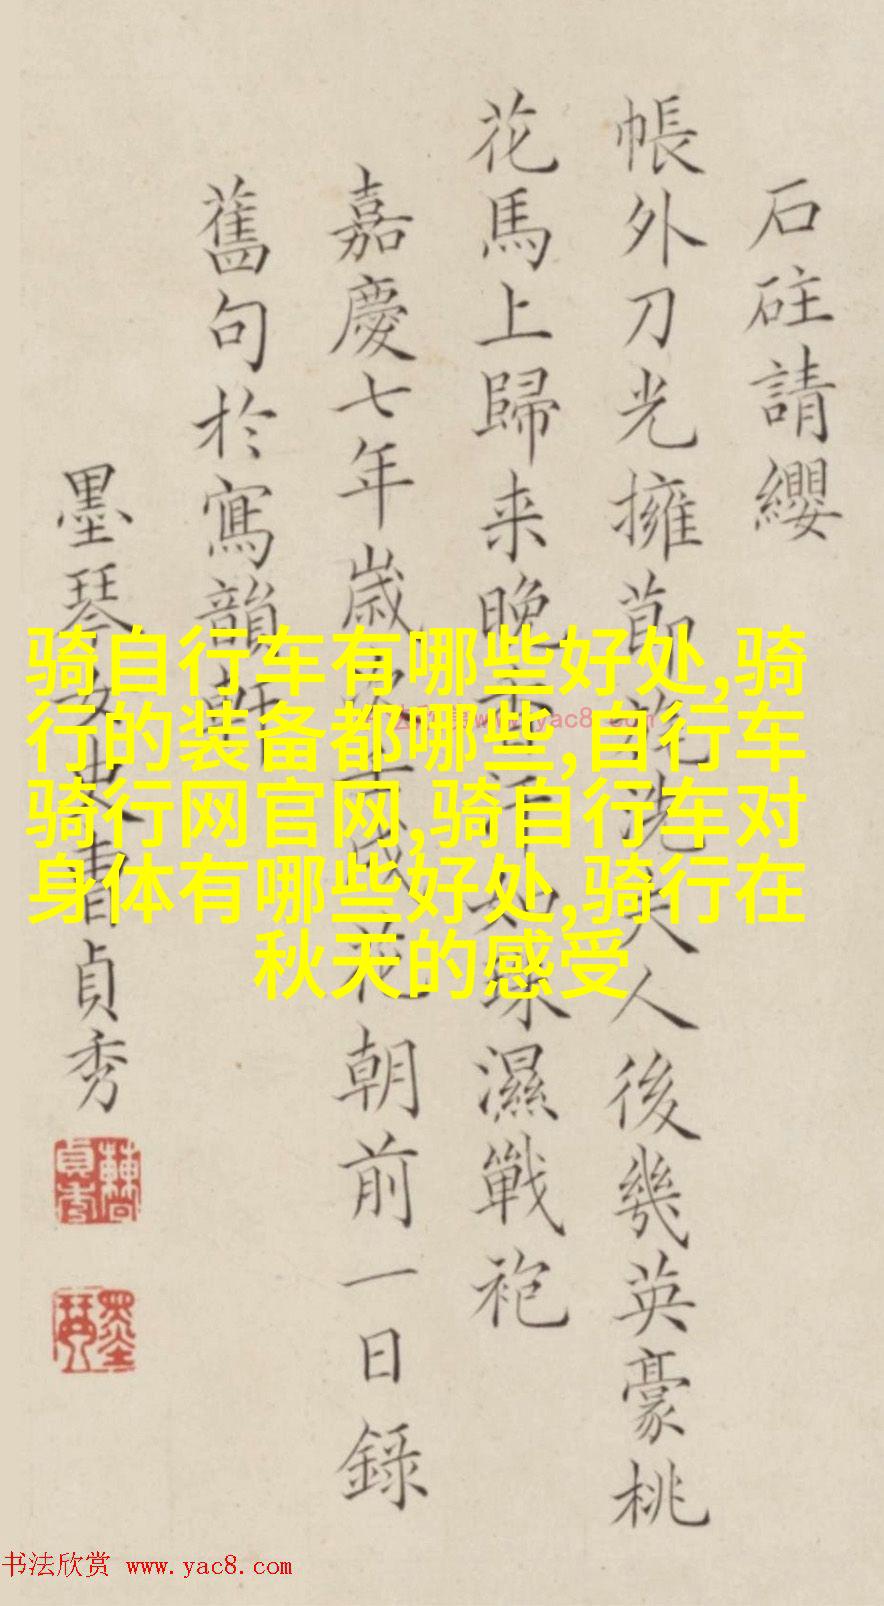 石砫請纓
帳外刀光擁節旄洗夫人後幾英豪桃
花馬上歸来晚香汗如珠濕戰袍
嘉慶七年歲花朝前一日錄
舊句於寫韻軒
墨琴女史曹貞秀
骑自行车有哪些好处,骑
行的装备都哪些,自行车
骑行网官网,骑自行车对
身体有哪些好处,骑行在
秋天的感受
书法欣赏 www.yac8.com